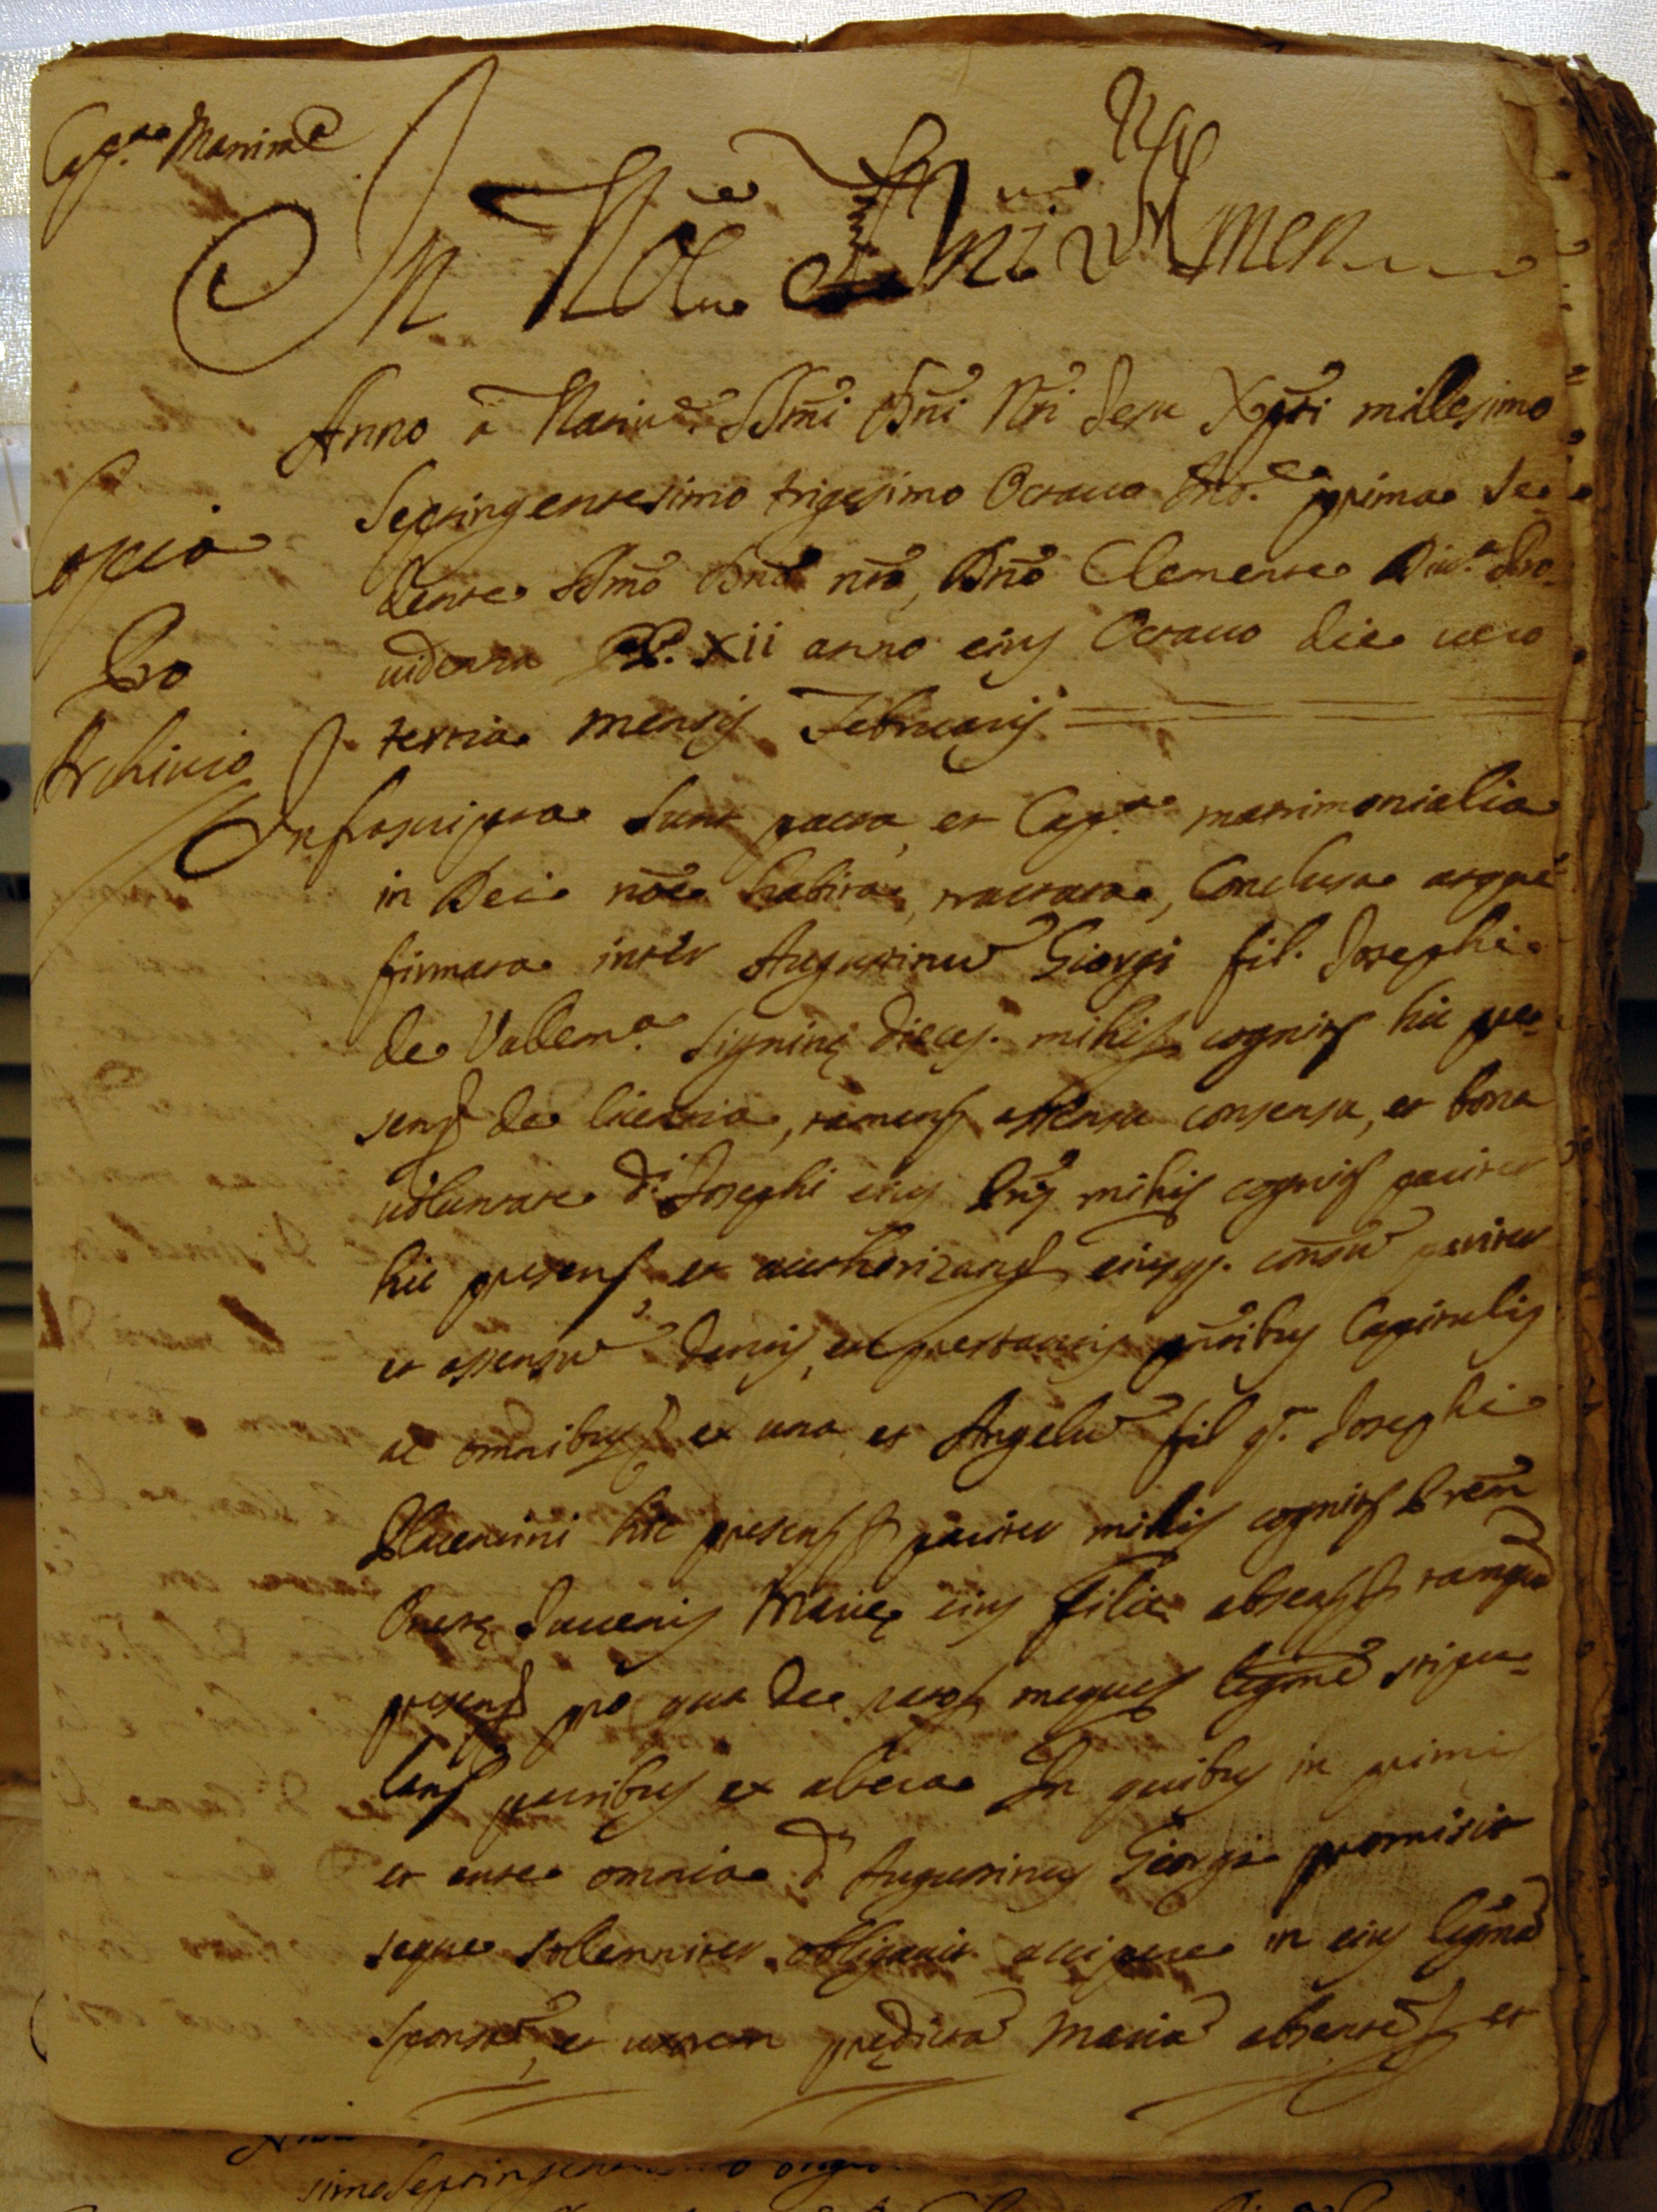 Cap.la Mat.lia
In Nõe Dñi Amen
Anno à Nativ.e SSmi Dñi Nri Jesu Xpti millesimo
Septingentesimo trigesimo Octavo Ind.e prima Se-
Copia
dente SSmo Dno nro, Dno Clemente Div.a Pro-
videntia PP. XII anno eius Octavo die vero
Pro
tertia mensis Februarij
Archivio
Infrascripta sunt pacta, et Cap.la matrimonialia
in Dei nõe habita, tractata, Conclusa atque
firmata inter Augustinũ Giorgi fil. Josephi
de Vallem.a Signinę dieces. mihi cognit hic pre-
sens de licentia, tamen assensu consensu, et bona
voluntate d.i Josephi eius Pris mihi cognit pariter
hic presens et authorizans eiusq. consũ pariter
et assensũ dantis, et prestantis pñtibus Capitulis
ac omnibus ex una et Angelũ fil q.m Josephi
Placentini hic presens pariter mihi cognit Prem
Onestę Juvenis Marię eius Filię absens tamq̃
presens pro qua de rato meque legme stipu-
lans partibus ex altera In quibus in primis
et ante omnia d.s Augustinus Giorgi promisit
seque solemniter obligavit accipere in eius legmã
sponsã, et uxorem prędictã Mariã absentẽ et